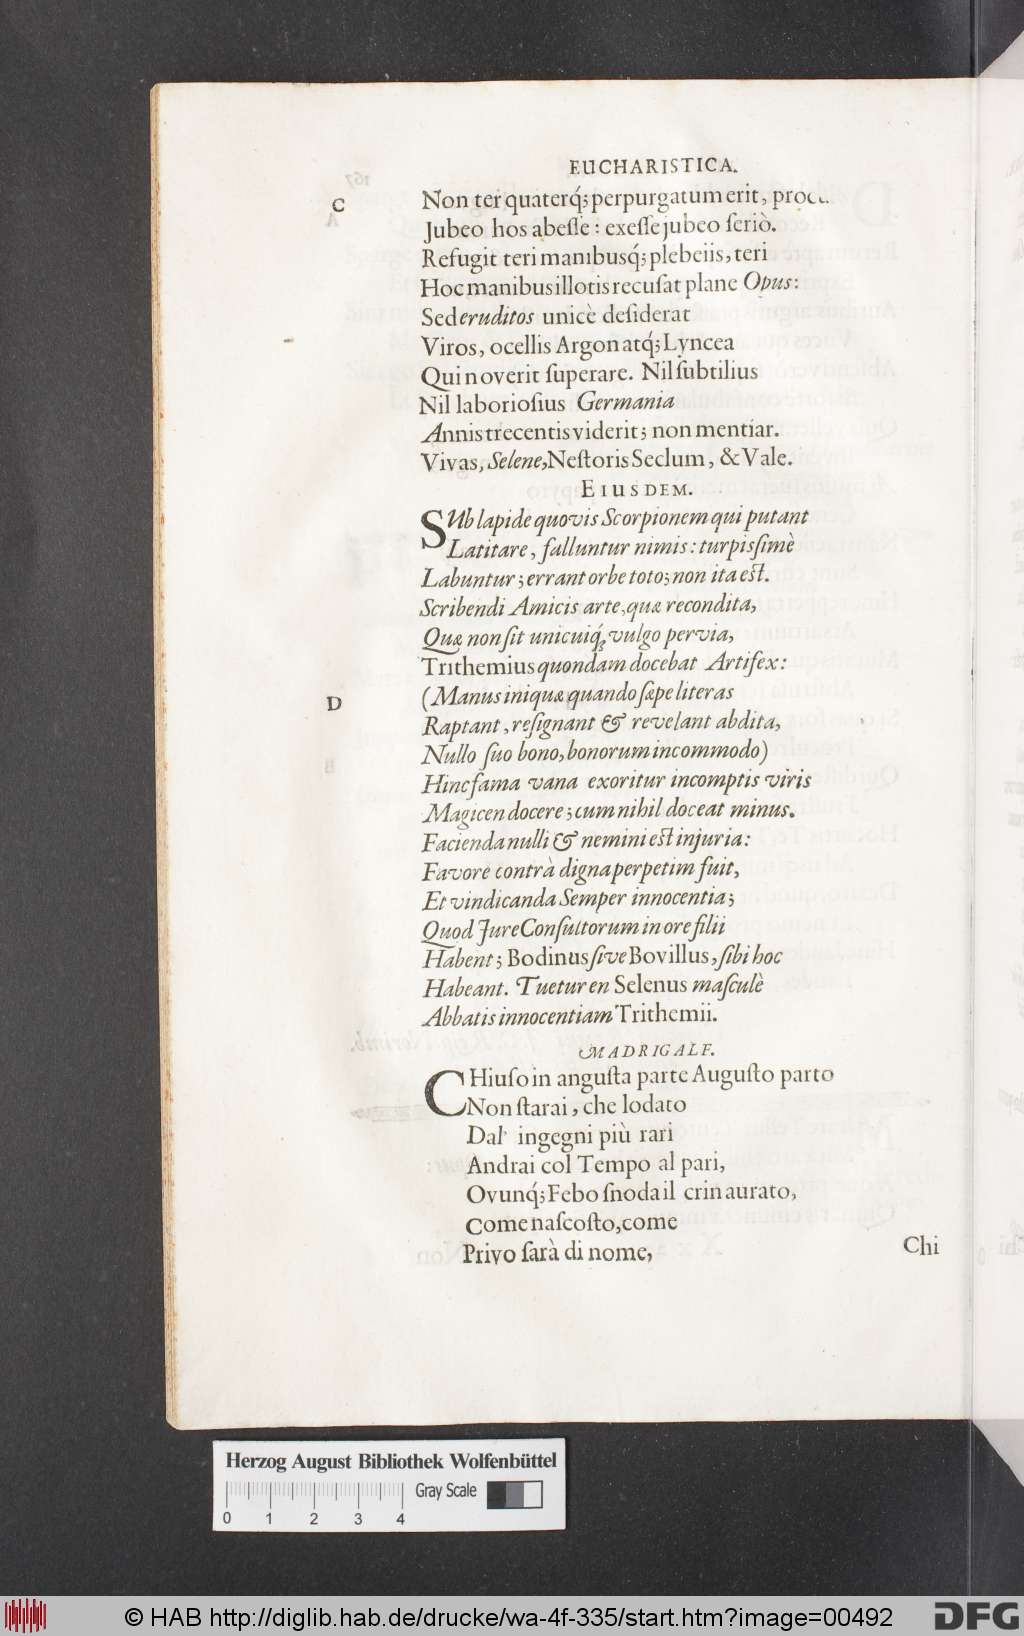 EUCHARISTICA.
C
Non ter quaterq́; perpurgatum erit,
Jubeo hos abeſſe : exeſſe jubeo ſeriò.
Refugit teri manibusq́; plebeiis, teri
Hoc manibus illotis recuſat plane Opus:
Sed eruditos unicè deſiderat
Viros, ocellis Argon atq́; Lyncea
Qui noverit ſuperare. Nil ſubtilius
Nil laborioſius Germania
Annis trecentis viderit; non mentiar.
Vivas, Selene, Neſtoris Seclum, & Vale.
EIUSDEM.
SUb lapide quovis Scorpionem qui putant
Latitare, falluntur nimis: turpiſſimè
Labuntur; errant orbe toto; non ita eſt.
Scribendi Amicis arte, quæ recondita,
Quæ non ſit unicuiq́; vulgo pervia,
Trithemius quondam docebat Artifex:
D
(Manus iniquæ quando ſæpe literas
Raptant, reſignant & revelant abdita,
Nullo ſuo bono, bonorum incommodo)
Hinc fama vana exoritur incomptis viris
Magicen docere; cum nihil doceat minus.
Facienda nulli & nemini eſt injuria:
Favore contrà digna perpetim fuit,
Et vindicanda Semper innocentia;
Quod Jure Conſultorum in ore filii
Habent; Bodinus ſive Bovillus, ſibi hoc
Habeant. Tuetur en Selenus maſculè
Abbatis innocentiam Trithemii.
MADRIGALE.
CHiuſo in anguſta parte Auguſto parto
Non ſtarai, che lodato
Dal' ingegni più rari
Andrai col Tempo al pari,
Ovunq́; Febo ſnoda il crin aurato,
Come naſcoſto, come
Privo ſarà di nome,
Chi
Herzog August Bibliothek Wolfenbüttel
Gray Scale
0 1 2 3 4
© HAB http://diglib.hab.de/drucke/wa-4f-335/start.htm?image=00492
DFG